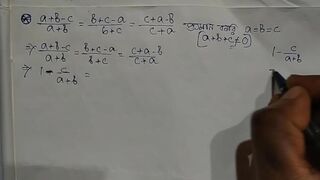 * (a+b-c)/(a+b) = (b+c-a)/(b+c) = (c+a-b)/(c+a) প্রমাণ করি a=b=c
[a+b+c≠0]
⇒ (a+b-c)/(a+b) = (b+c-a)/(b+c) = (c+a-b)/(c+a)
1 - c/(a+b)
⇒ 1 - c/(a+b) =